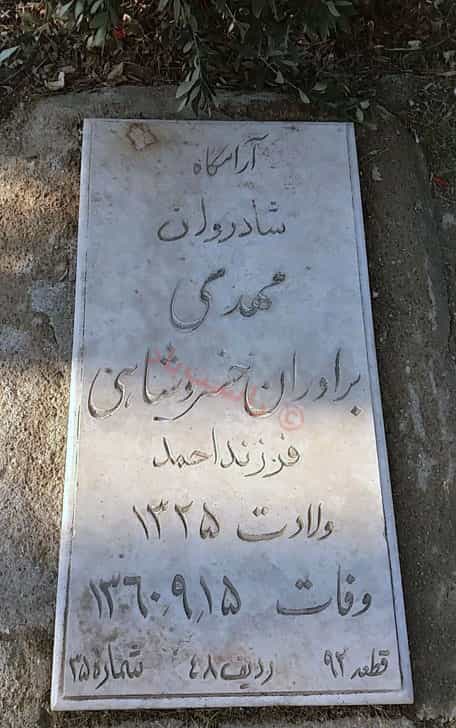 آرامگاه
شادروان
مهدی
براوران خسروشاهی
فرزند احمد
ولادت ۱۳۲۵
وفات ۱۳۶۰.۹.۱۵
قطعه ۹۲ ردیف ۴۸ شماره ۳۵